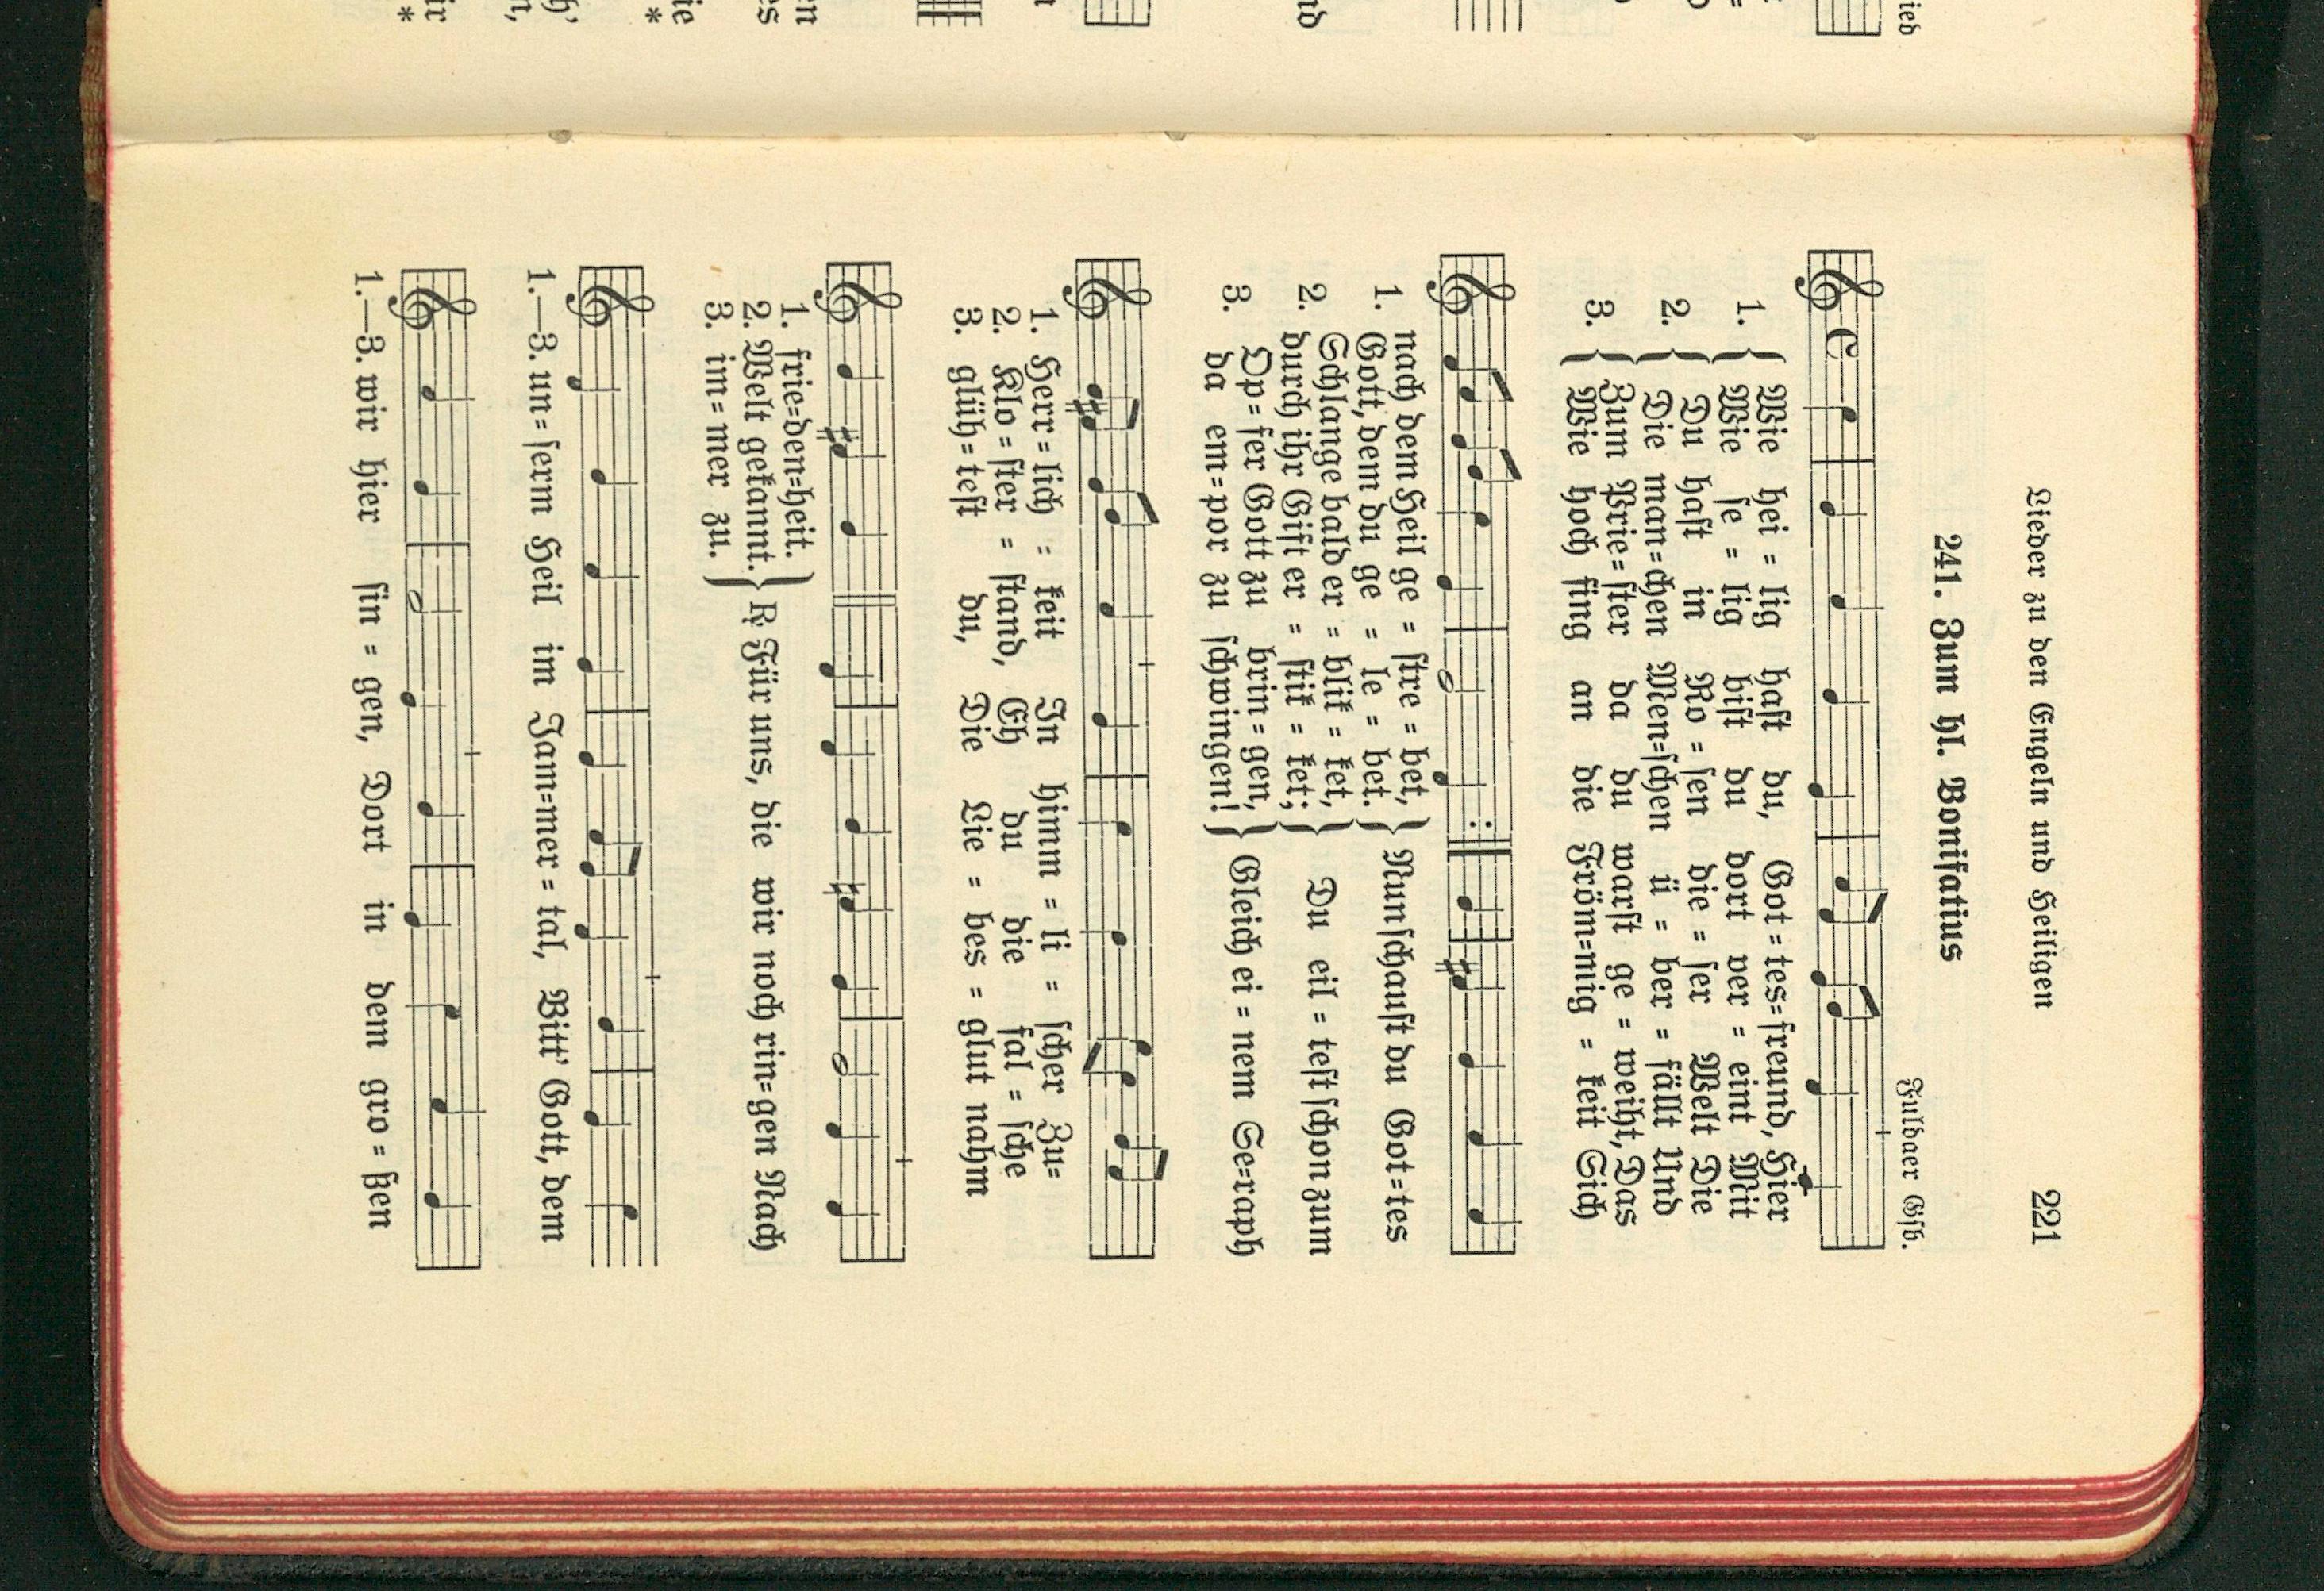 Lieder zu den Engeln und Heiligen 221
241. Zum hl. Bonifatius
Fuldaer Gsb.
1. { Wie hei = lig hast du, Got = tes=freund, Hier
Wie se = lig bist du dort ver = eint Mit
2. { Du hast in Ro = sen die = ser Welt Die
Die man=chen Men=schen ü = ber = fällt Und
3. { Zum Prie = ster da du warst ge = weiht, Das
Wie hoch fing an die Fröm=mig = keit Sich
1. nach dem Heil ge = stre = bet,
Gott, dem du ge = le = bet. } Nun schaust du Got=tes
2. Schlange bald er = blik = ket,
durch ihr Gift er = stik = ket; } Du eil = test schon zum
3. Op = fer Gott zu brin = gen,
da em=por zu schwingen! } Gleich ei = nem Se=raph
1. Herr = lich = keit In himm = li = scher Zu=
2. Klo = ster = stand, Eh du die fal = sche
3. glüh = test du, Die Lie = bes = glut nahm
1. frie=den=heit.
2. Welt gekannt.
3. im = mer zu. } ℟ Für uns, die wir noch rin=gen Nach
1.—3. un = serm Heil im Jam=mer = tal, Bitt' Gott, dem
1.—3. wir hier sin = gen, Dort in dem gro = ßen
ied
=
nd
n
es
ie
*
h'
n,
ir
*